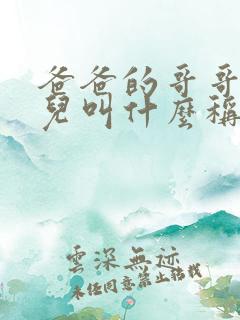 爸爸的哥哥
兒叫什麼稱
雲深無迹
未经同意禁止转载